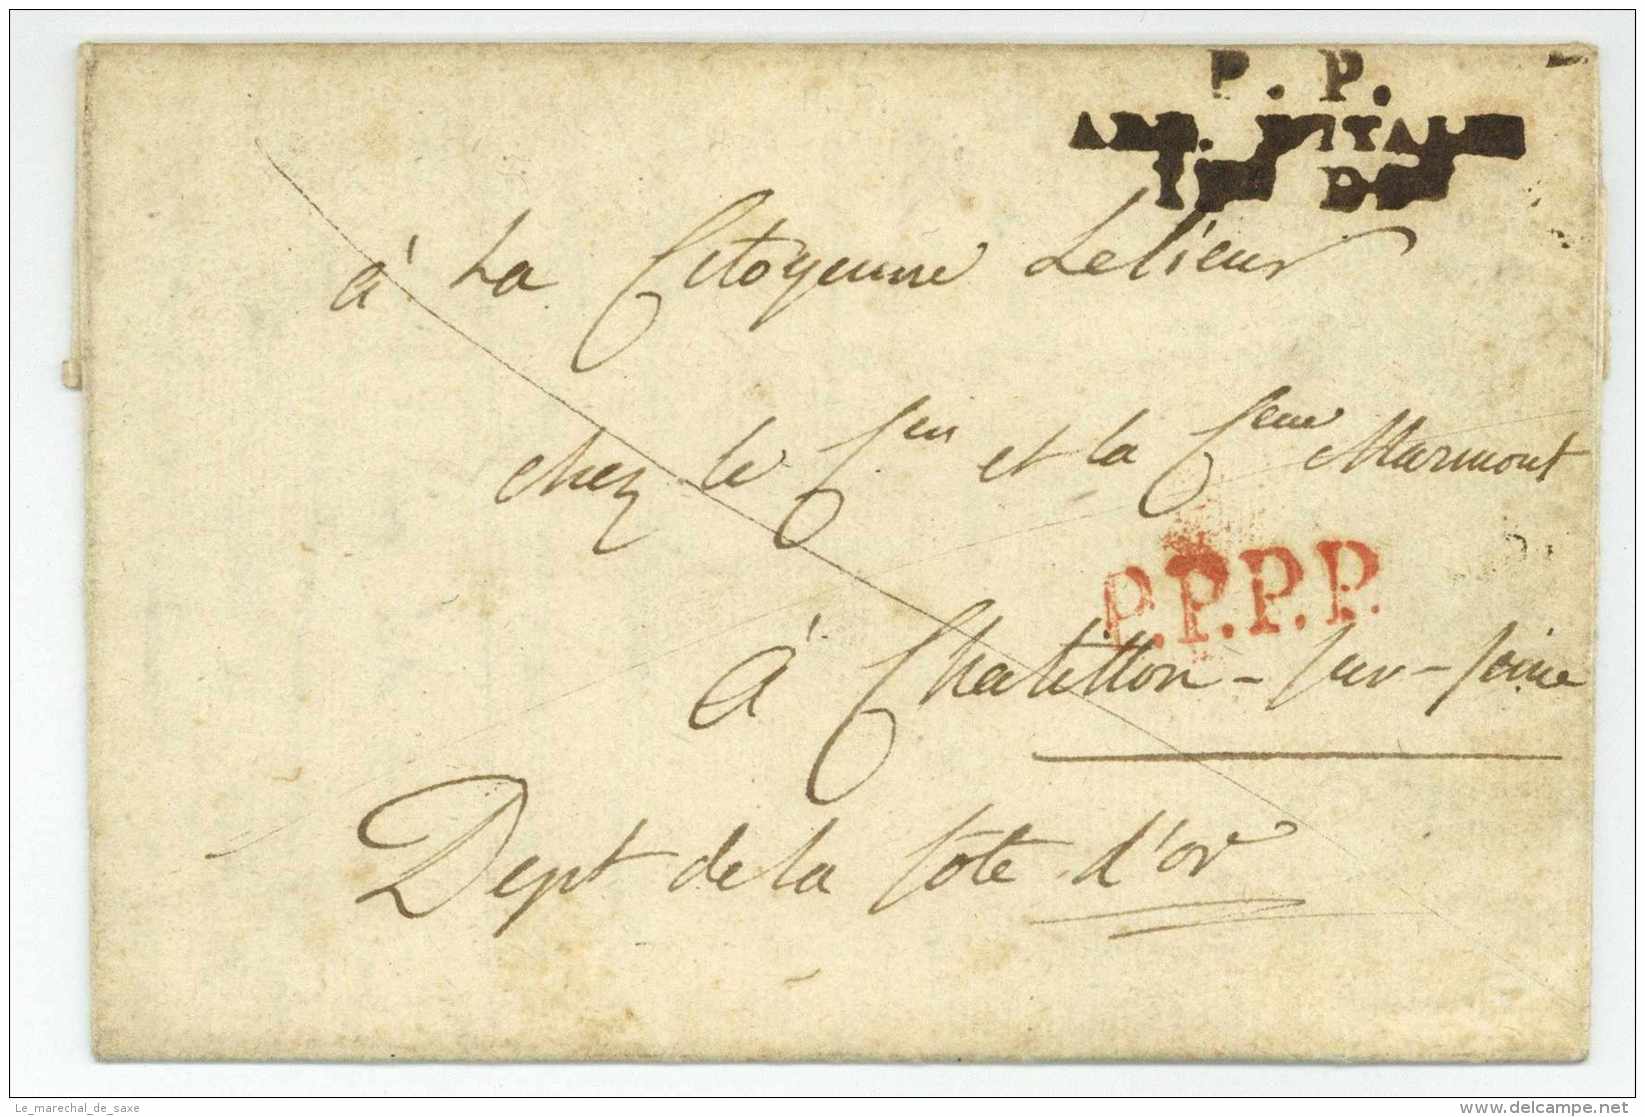 P. P.
ARM. D'ITALIE
à La Citoyenne Lelieur
chez le C.en et la C.enne Marmont
P.P.P.P.
à Chatillon-sur-seine
Dept de la Cote d'or
Le_marechal_de_saxe
delcampe.net